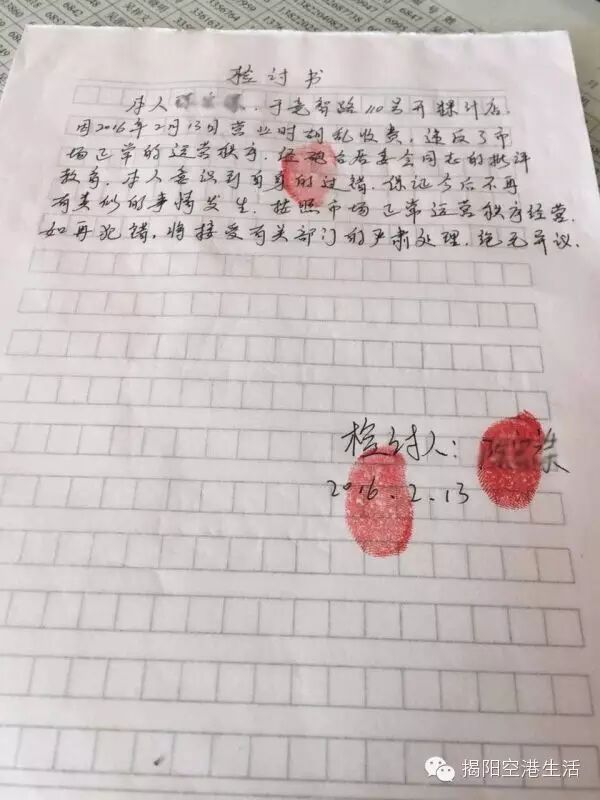 检讨书
本人 于光智路110号开粿汁店,
因2016年2月13日营业时胡乱收费,违反了市
场正常的运营秩序.经砲台居委会同志的批评
教育.本人意识到自身的过错.保证今后不再
有类似的事情发生.按照市场正常运营秩序经营.
如再犯错,将接受有关部门的严肃处理,绝无异议.
检讨人:
2016.2.13
揭阳空港生活